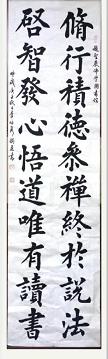 脩行積德參禪終於說法
啓智發心悟道唯有讀書